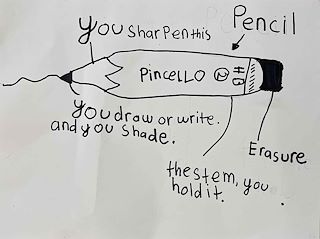 Pencil
you sharpen this
PinCELLO 2 HB
you draw or write.
and you shade.
Erasure
the stem, you
hold it.